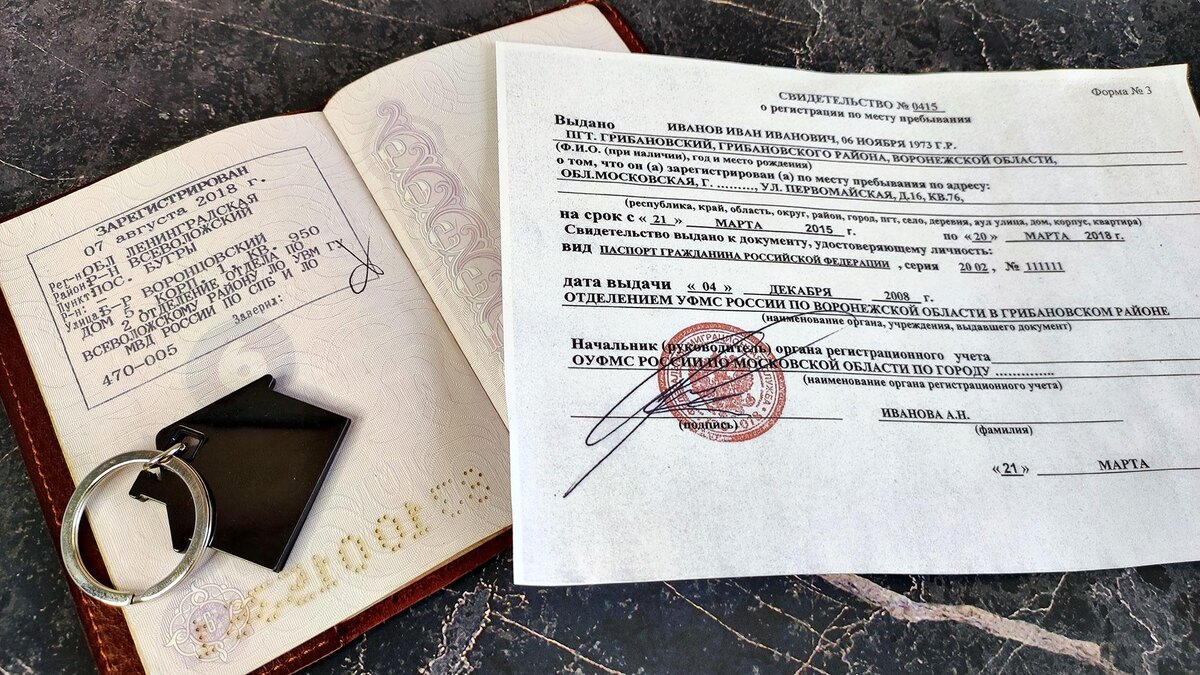 ЗАРЕГИСТРИРОВАН
07 августа 2018 г.
Рег-н ОБЛ ЛЕНИНГРАДСКАЯ
Район Р-Н ВСЕВОЛОЖСКИЙ
Пункт ПОС. БУГРЫ
Р-н:
Улица Б-Р ВОРОНЦОВСКИЙ
ДОМ 5 КОРП. 1 КВ. 950
2 ОТДЕЛЕНИЕ ОТДЕЛА ПО
ВСЕВОЛОЖСКОМУ РАЙОНУ ЛО УВМ ГУ
МВД РОССИИ ПО СПБ И ЛО
470-005 Заверил:
Форма № 3
СВИДЕТЕЛЬСТВО № 0415
о регистрации по месту пребывания
Выдано ИВАНОВ ИВАН ИВАНОВИЧ, 06 НОЯБРЯ 1973 Г.Р.
ПГТ. ГРИБАНОВСКИЙ, ГРИБАНОВСКОГО РАЙОНА, ВОРОНЕЖСКОЙ ОБЛАСТИ,
(Ф.И.О. (при наличии), год и место рождения)
о том, что он (а) зарегистрирован (а) по месту пребывания по адресу:
ОБЛ.МОСКОВСКАЯ, Г. .........., УЛ. ПЕРВОМАЙСКАЯ, Д.16, КВ.76,
(республика, край, область, округ, район, город, пгт, село, деревня, аул улица, дом, корпус, квартира)
на срок с « 21 » МАРТА 2015 г. по «20» МАРТА 2018 г.
Свидетельство выдано к документу, удостоверяющему личность:
вид ПАСПОРТ ГРАЖДАНИНА РОССИЙСКОЙ ФЕДЕРАЦИИ , серия 20 02 , № 111111
дата выдачи « 04 » ДЕКАБРЯ 2008 г.
ОТДЕЛЕНИЕМ УФМС РОССИИ ПО ВОРОНЕЖСКОЙ ОБЛАСТИ В ГРИБАНОВСКОМ РАЙОНЕ
(наименование органа, учреждения, выдавшего документ)
Начальник (руководитель) органа регистрационного учета
ОУФМС РОССИИ ПО МОСКОВСКОЙ ОБЛАСТИ ПО ГОРОДУ ..............
(наименование органа регистрационного учета)
ИВАНОВА А.Н.
(подпись) (фамилия)
«21» МАРТА